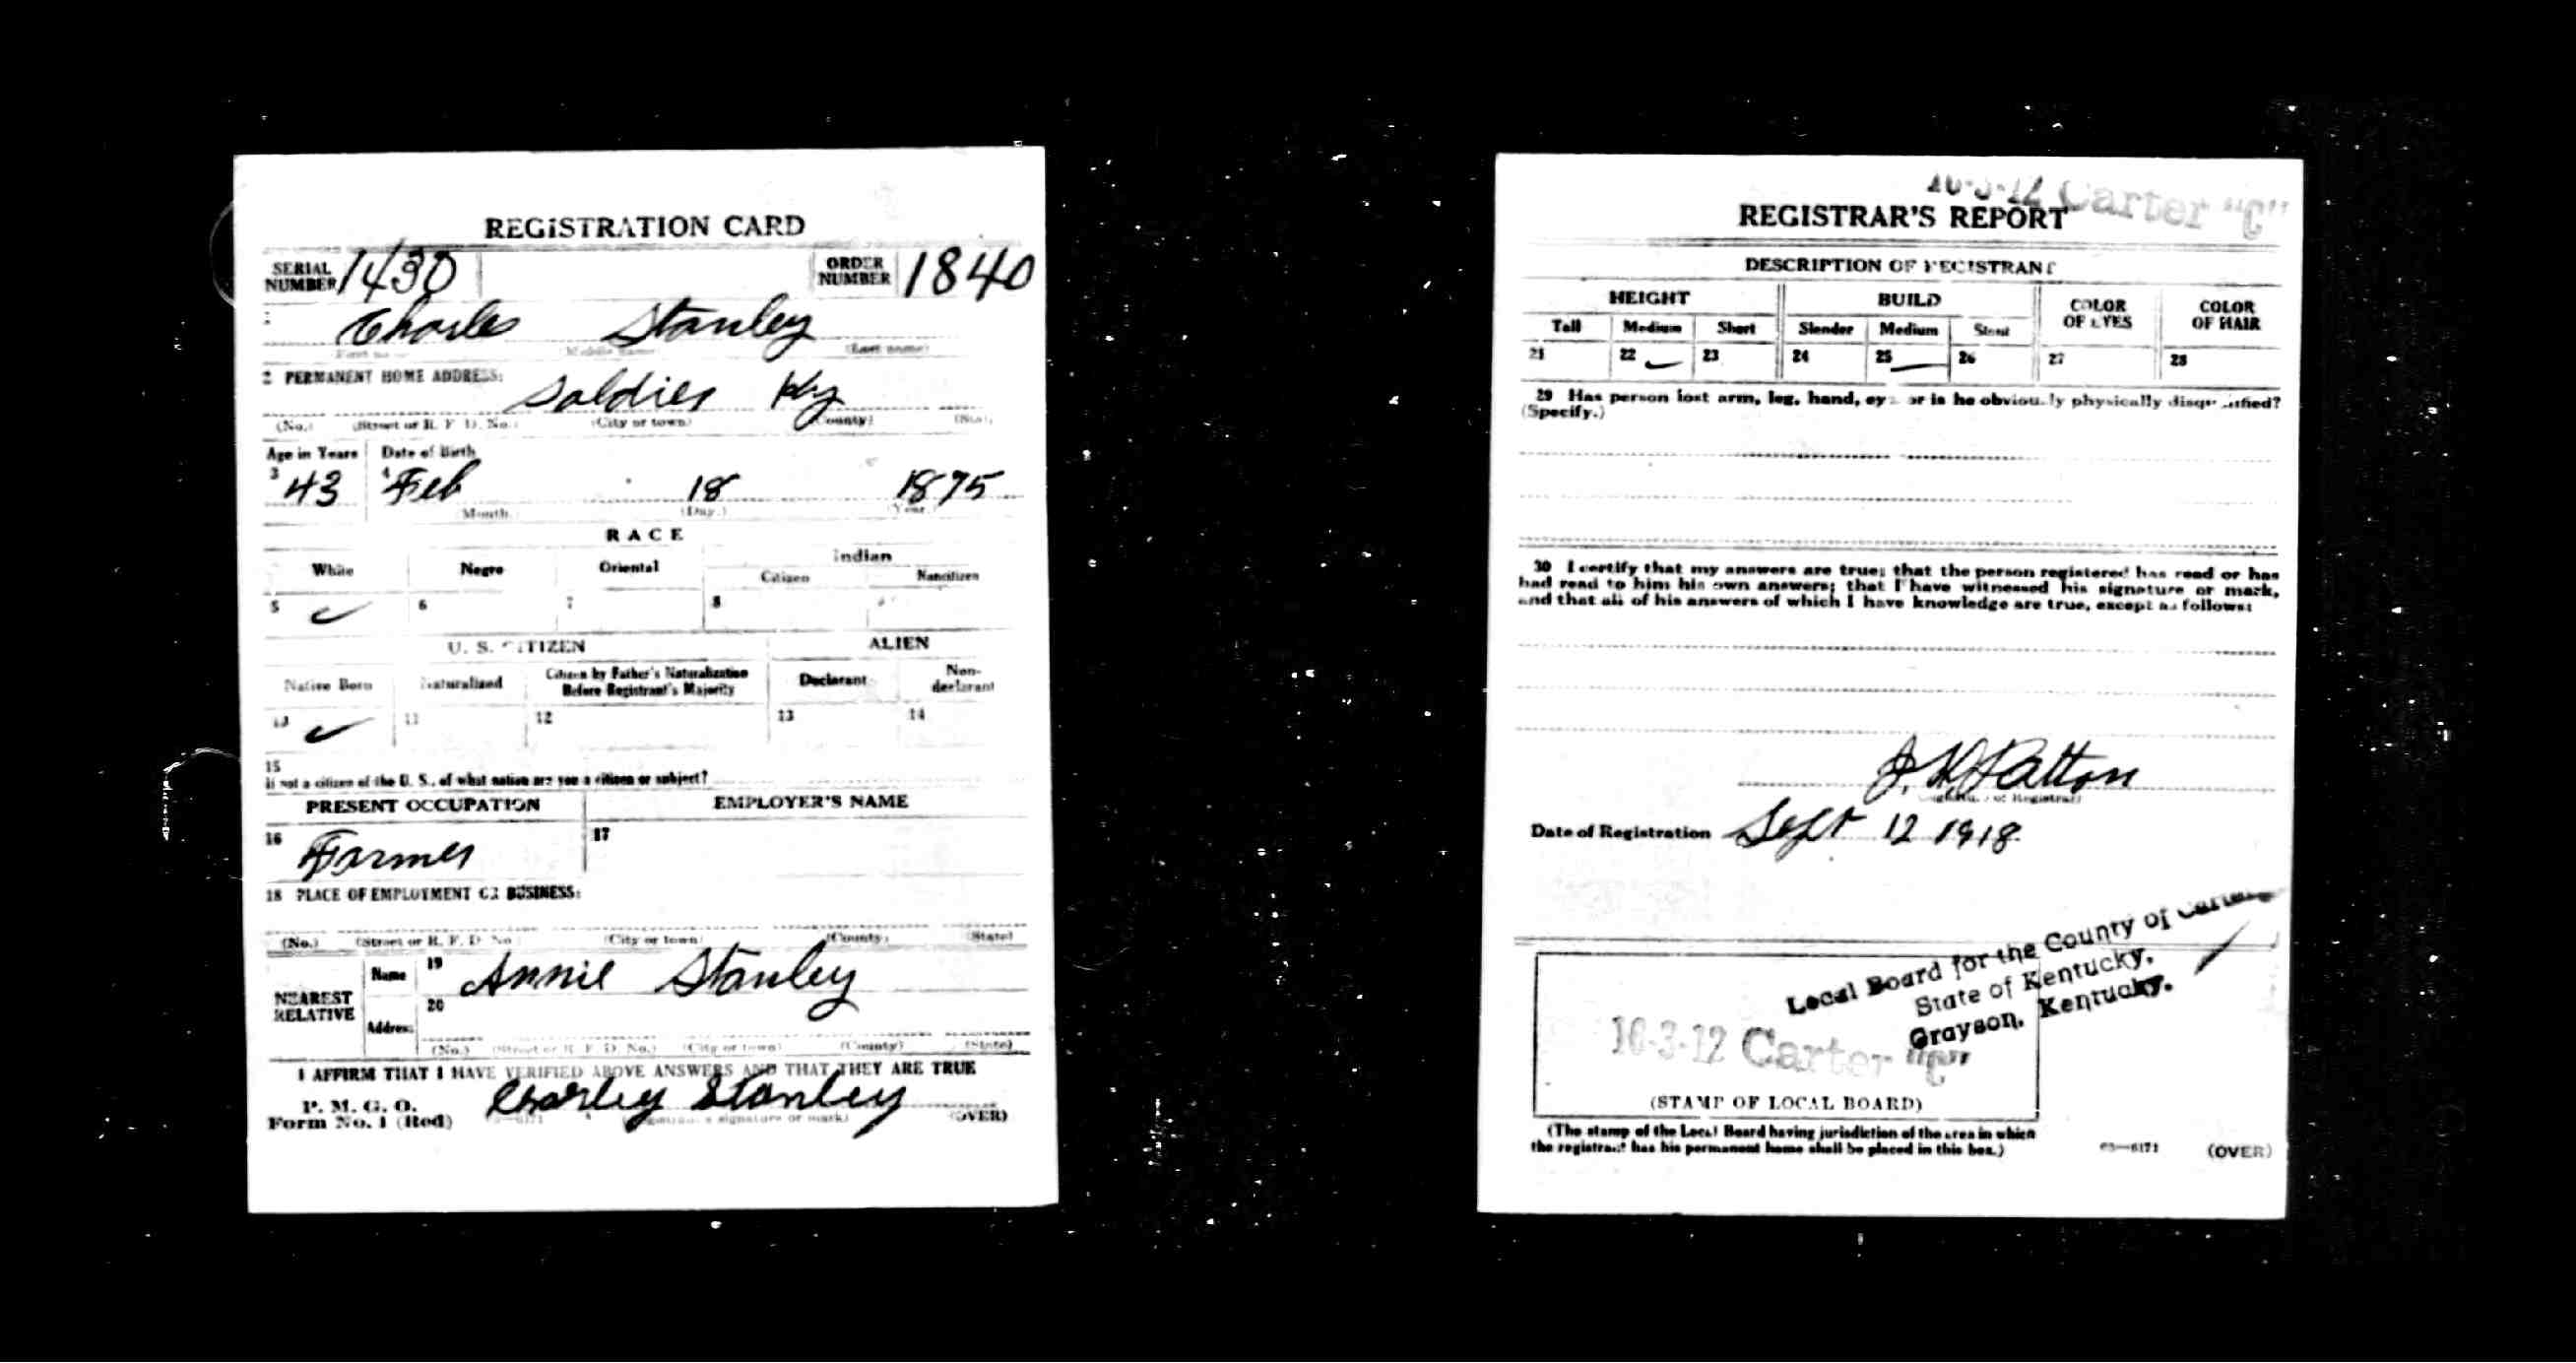 REGISTRATION CARD
SERIAL NUMBER 1430 ORDER NUMBER 1840
1 Charles Stanley
(Middle name) (Last name)
2 PERMANENT HOME ADDRESS:
Soldier Ky
(No.) (Street or R. F. D. No.) (City or town) (County) (State)
Age in Years Date of Birth
3 43 4 Feb 18 1875
(Month.) (Day.) (Year.)
RACE
White Negro Oriental Indian
Citizen Noncitizen
5 ✓ 6 7 8
U. S. CITIZEN ALIEN
Native Born Naturalized Citizen by Father's Naturalization Before Registrant's Majority Declarant Non-declarant
10 ✓ 11 12 13 14
15
If not a citizen of the U. S., of what nation are you a citizen or subject?
PRESENT OCCUPATION EMPLOYER'S NAME
16 Farmer 17
18 PLACE OF EMPLOYMENT OR BUSINESS:
(No.) (Street or R. F. D. No.) (City or town) (County) (State)
NEAREST RELATIVE
Name 19 Annie Stanley
Address 20
(No.) (Street or R. F. D. No.) (City or town) (County) (State)
I AFFIRM THAT I HAVE VERIFIED ABOVE ANSWERS AND THAT THEY ARE TRUE
P. M. G. O.
Form No. 1 (Red) Charley Stanley
(Registrant's signature or mark) (OVER)
16-3-12 Carter "C"
REGISTRAR'S REPORT
DESCRIPTION OF REGISTRANT
HEIGHT BUILD COLOR OF EYES COLOR OF HAIR
Tall Medium Short Slender Medium Stout
21 22 ✓ 23 24 25 26 27 28
29 Has person lost arm, leg, hand, eye or is he obviously physically disqualified?
(Specify.)
30 I certify that my answers are true; that the person registered has read or has
had read to him his own answers; that I have witnessed his signature or mark,
and that all of his answers of which I have knowledge are true, except as follows:
Patton
(Signature of Registrar)
Date of Registration Sept 12 1918
Local Board for the County of Carter
State of Kentucky,
Grayson, Kentucky.
16-3-12 Carter "C"
(STAMP OF LOCAL BOARD)
(The stamp of the Local Board having jurisdiction of the area in which
the registrant has his permanent home shall be placed in this box.)
03—6171 (OVER)